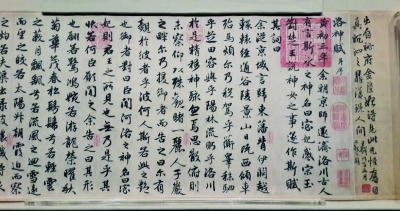 洛神賦
黃初三年余朝京師還濟洛川古人
有言斯水之神名曰宓妃感宋玉
對楚王神女之事遂作斯賦
其詞曰
余從京域言歸東藩背伊闕越
轘轅經通谷陵景山日既西傾車
殆馬煩尔乃稅駕乎蘅皋秣駟
乎芝田容與乎陽林流眄乎洛川
於是精移神駭忽焉思散俯則
未察仰以殊觀睹一麗人于巖
之畔尔乃援御者而告之曰尔有
覿於彼者乎彼何人斯若此之艷
也御者對曰臣聞河洛之神名曰宓
妃則君王之所見也無乃是乎其
狀若何臣願聞之余告之曰其形
也翩若驚鴻婉若游龍榮曜秋
菊華茂春松髣髴兮若輕雲
之蔽月飄颻兮若流風之迴雪遠
而望之皎若太陽升朝霞迫而察
之灼若